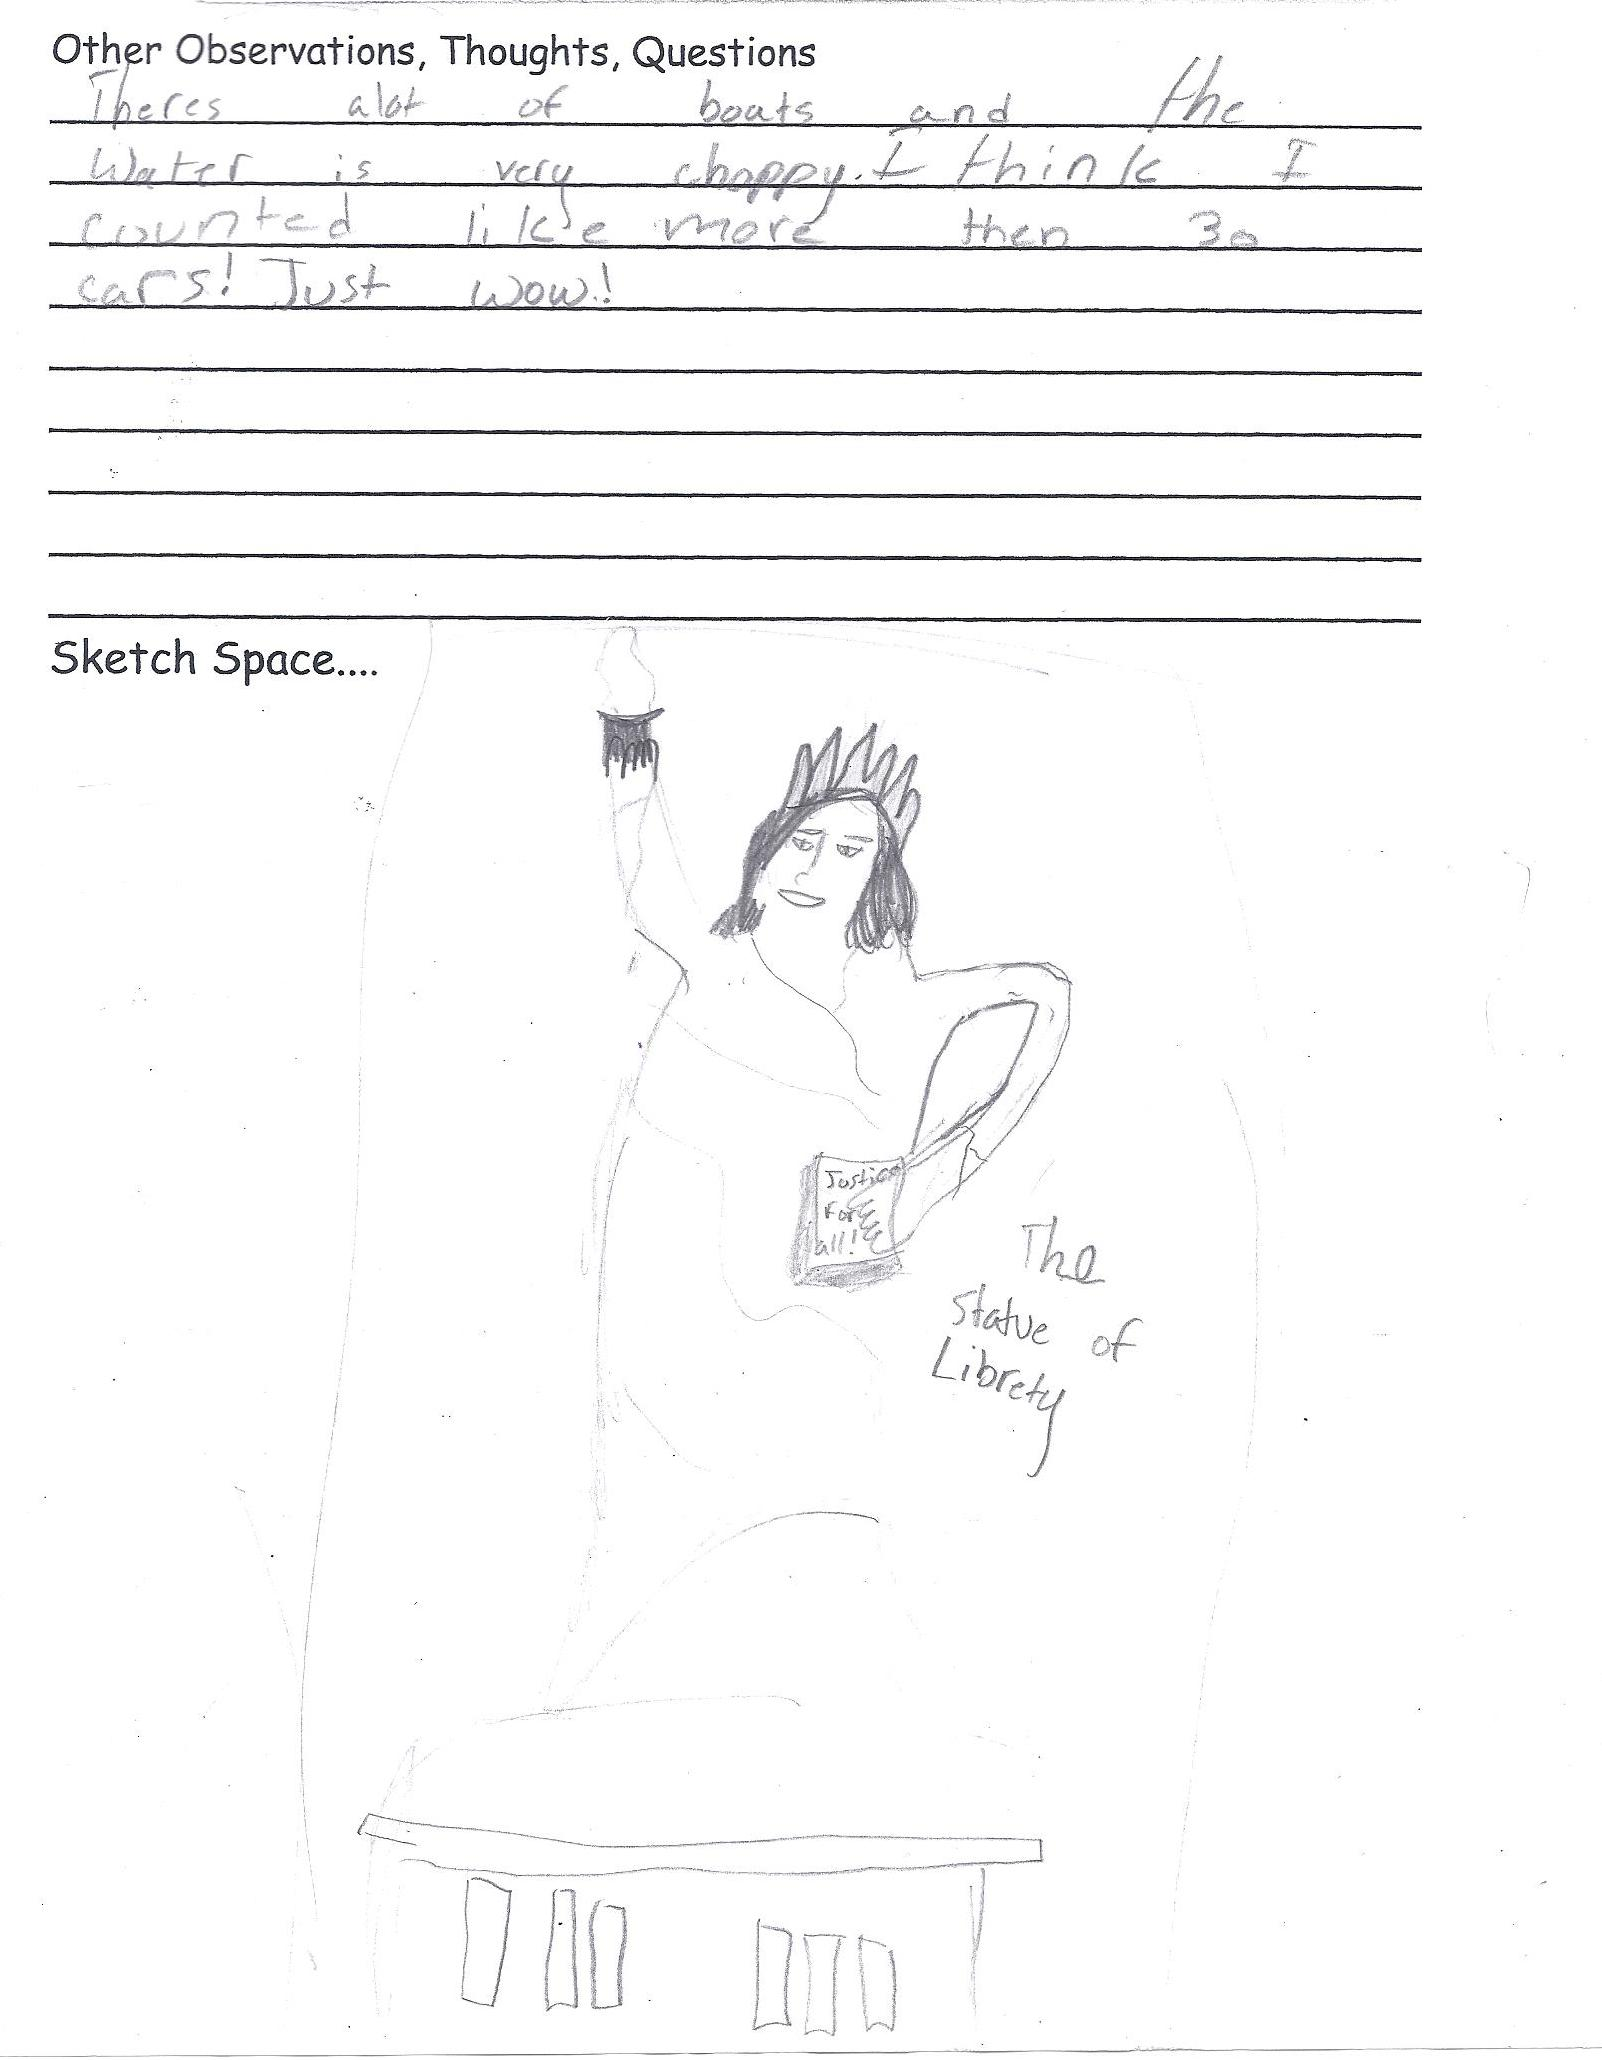 Other Observations, Thoughts, Questions
Theres alot of boats and the
Water is very choppy. I think I
counted like more then 30
cars! Just wow!
Sketch Space....
Justice
For
all!
The
Statue of
Librety